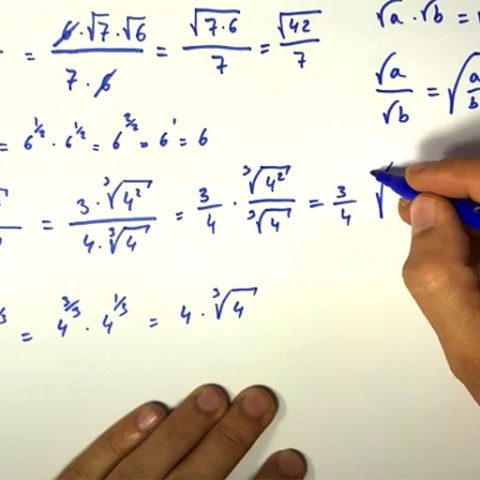 = (6·√7·√6)/(7·6) = √(7·6)/7 = √42/7
√a · √b =
√a/√b = √(a/b)
= 6^(1/2) · 6^(1/2) = 6^(2/2) = 6^1 = 6
= (3·∛(4²))/(4·∛4) = 3/4 · ∛(4²)/∛4 = 3/4 √
= 4^(3/3) · 4^(1/3) = 4 · ∛4